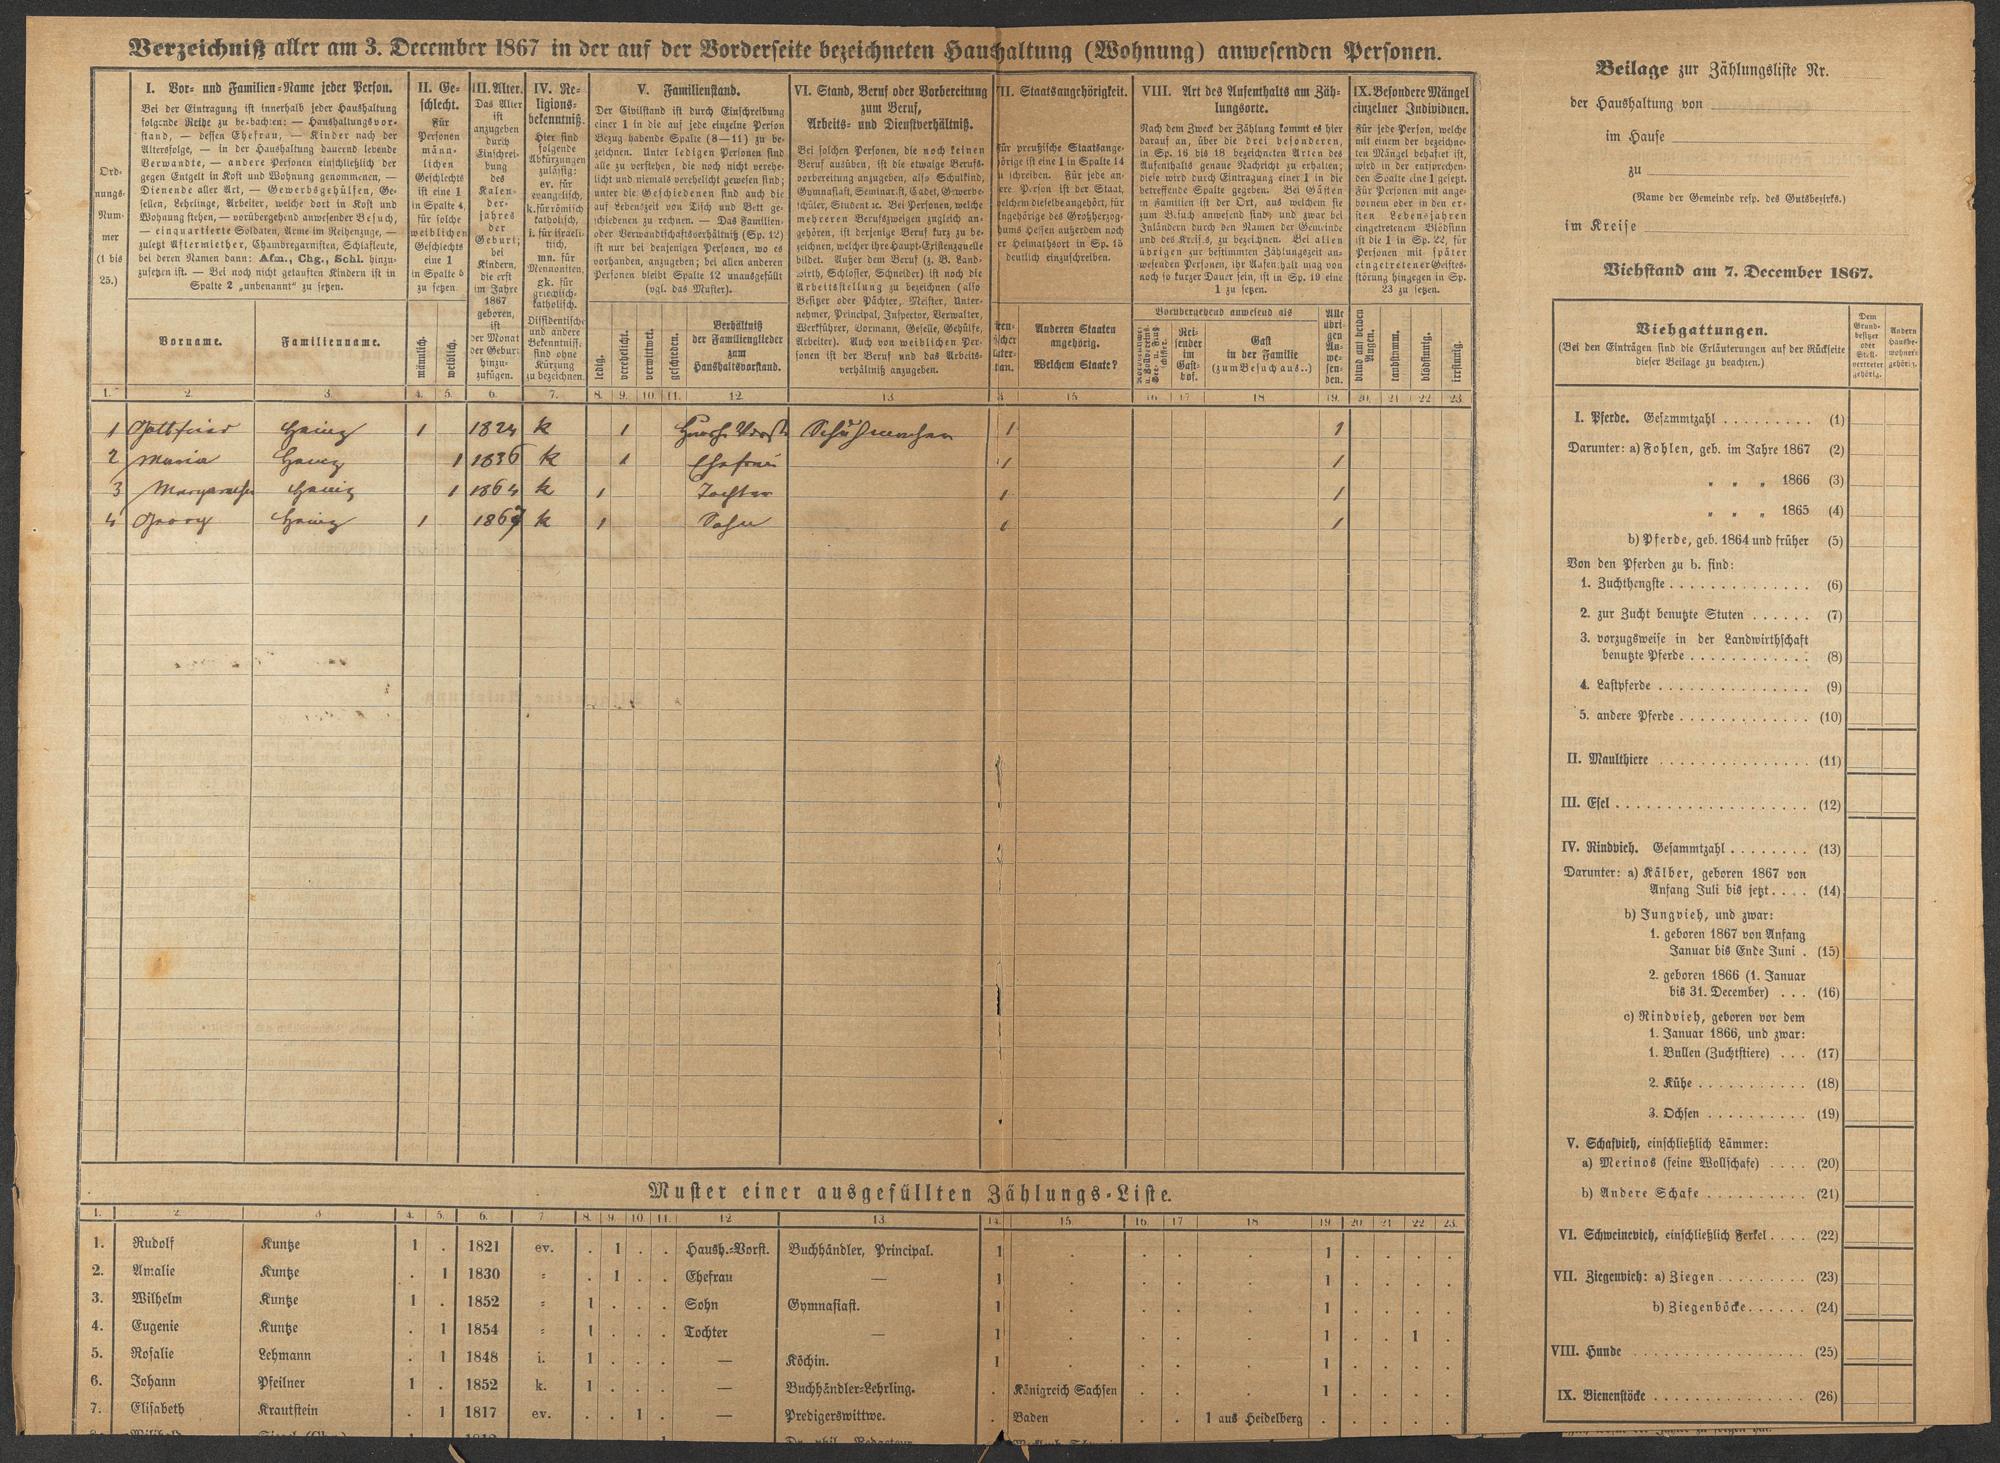 Verzeichniß aller am 3. December 1867 in der auf der Vorderseite bezeichneten Haushaltung (Wohnung) anwesenden Personen.
Ord-
nungs-
Num-
mer
(1 bis
25.)
I. Vor- und Familien-Name jeder Person.
Bei der Eintragung ist innerhalb jeder Haushaltung
folgende Reihe zu beobachten: — Haushaltungsvor-
stand, — dessen Ehefrau, — Kinder nach der
Altersfolge, — in der Haushaltung dauernd lebende
Verwandte, — andere Personen einschließlich der
gegen Entgelt in Kost und Wohnung genommenen, —
Dienende aller Art, — Gewerbsgehülfen, Ge-
sellen, Lehrlinge, Arbeiter, welche dort in Kost und
Wohnung stehen, — vorübergehend anwesender Besuch,
— einquartierte Soldaten, Arme im Reihenzuge, —
zuletzt Aftermiether, Chambregarnisten, Schlafleute,
bei deren Namen dann: Afm., Chg., Schl. hinzu-
zusetzen ist. — Bei noch nicht getauften Kindern ist in
Spalte 2 „unbenannt" zu setzen.
Vorname.
Familienname.
II. Ge-
schlecht.
Für
Personen
männ-
lichen
Geschlechts
ist eine 1
in Spalte 4,
für solche
weiblichen
Geschlechts
eine 1
in Spalte 5
zu setzen.
männlich.
weiblich.
III. Alter.
Das Alter
ist
anzugeben
durch
Einschrei-
bung
des
Kalen-
der-
jahres
der
Geburt;
bei
Kindern,
die erst
im Jahre
1867
geboren,
ist
der Monat
der Geburt
hinzu-
zufügen.
IV. Re-
ligions-
bekenntniß.
Hier sind
folgende
Abkürzungen
zulässig:
ev. für
evangelisch,
k. für römisch
katholisch,
i. für israeli-
tisch,
mn. für
Mennoniten,
gk. für
griechisch-
katholisch.
Dissidentische
und andere
Bekenntniss.
sind ohne
Kürzung
zu bezeichnen.
V. Familienstand.
Der Civilstand ist durch Einschreibung
einer 1 in die auf jede einzelne Person
Bezug habende Spalte (8—11) zu be-
zeichnen. Unter ledigen Personen sind
alle zu verstehen, die noch nicht verehe-
licht und niemals verehelicht gewesen sind;
unter die Geschiedenen sind auch die
auf Lebenszeit von Tisch und Bett ge-
schiedenen zu rechnen. — Das Familien-
oder Verwandtschaftsverhältniß (Sp. 12)
ist nur bei denjenigen Personen, wo es
vorhanden, anzugeben; bei allen anderen
Personen bleibt Spalte 12 unausgefüllt
(vgl. das Muster).
ledig.
verehelicht.
verwittwet.
geschieden.
Verhältniß
der Familienglieder
zum
Haushaltsvorstand.
VI. Stand, Beruf oder Vorbereitung
zum Beruf,
Arbeits- und Dienstverhältniß.
Bei solchen Personen, die noch keinen
Beruf ausüben, ist die etwaige Berufs-
vorbereitung anzugeben, also Schulkind,
Gymnasiast, Seminarist, Cadet, Gewerbe-
schüler, Student ꝛc. Bei Personen, welche
mehreren Berufszweigen zugleich an-
gehören, ist derjenige Beruf kurz zu be-
zeichnen, welcher ihre Haupt-Existenzquelle
bildet. Außer dem Beruf (z. B. Land-
wirth, Schlosser, Schneider) ist noch die
Arbeitsstellung zu bezeichnen (also
Besitzer oder Pächter, Meister, Unter-
nehmer, Principal, Inspector, Verwalter,
Werkführer, Vormann, Geselle, Gehülfe,
Arbeiter). Auch von weiblichen Per-
sonen ist der Beruf und das Arbeits-
verhältniß anzugeben.
II. Staatsangehörigkeit.
für preußische Staatsange-
hörige ist eine 1 in Spalte 14
u schreiben. Für jede an-
ere Person ist der Staat,
welchem dieselbe angehört, für
Angehörige des Großherzog-
thums Hessen außerdem noch
er Heimathsort in Sp. 15
deutlich einzuschreiben.
Anderen Staaten
angehörig.
Welchem Staate?
VIII. Art des Aufenthalts am Zäh-
lungsorte.
Nach dem Zweck der Zählung kommt es hier
darauf an, über die drei besonderen,
in Sp. 16 bis 18 bezeichneten Arten des
Aufenthalts genaue Nachricht zu erhalten;
diese wird durch Eintragung einer 1 in die
betreffende Spalte gegeben. Bei Gästen
in Familien ist der Ort, aus welchem sie
zum Besuch anwesend sind, und zwar bei
Inländern durch den Namen der Gemeinde
und des Kreises, zu bezeichnen. Bei allen
übrigen zur bestimmten Zählungszeit an-
wesenden Personen, ihr Aufenthalt mag von
noch so kurzer Dauer sein, ist in Sp. 19 eine
1 zu setzen.
Vorübergehend anwesend als
Rei-
sender
im
Gast-
hof.
Gast
in der Familie
(zum Besuch aus..)
Alle
übri-
gen
An-
we-
sen-
den.
IX. Besondere Mängel
einzelner Individuen.
Für jede Person, welche
mit einem der bezeichne-
ten Mängel behaftet ist,
wird in der entsprechen-
den Spalte eine 1 gesetzt.
Für Personen mit ange-
bornem oder in den er-
sten Lebensjahren
eingetretenem Blödsinn
ist die 1 in Sp. 22, für
Personen mit später
eingetretener Geistes-
störung hingegen in Sp.
23 zu setzen.
blind auf beiden
Augen.
taubstumm.
blödsinnig.
irrsinnig.
1. 2. 3. 4. 5. 6. 7. 8. 9. 10. 11. 12. 13. 15. 16. 17. 18. 19. 20. 21. 22. 23.
1 Gottfried 1 1824 k 1 Haush. Vorst. Schuhmacher 1 1
2 Maria 1 1836 k 1 Ehefrau 1 1
3 Margaretha 1 1864 k 1 Tochter 1 1
4 Georg 1 1867 k 1 Sohn 1 1
Muster einer ausgefüllten Zählungs-Liste.
1. 2. 3. 4. 5. 6. 7. 8. 9. 10. 11. 12. 13. 14. 15. 16. 17. 18. 19. 20. 21. 22. 23.
1. Rudolf Kuntze 1 . 1821 ev. . 1 . . Haush.-Vorst. Buchhändler, Principal. 1 . . . . 1 . . . .
2. Amalie Kuntze . 1 1830 „ . 1 . . Ehefrau — 1 . . . . 1 . . . .
3. Wilhelm Kuntze 1 . 1852 „ 1 . . . Sohn Gymnasiast. 1 . . . . 1 . . . .
4. Eugenie Kuntze . 1 1854 „ 1 . . . Tochter — 1 . . . . 1 . . 1 .
5. Rosalie Lehmann . 1 1848 i. 1 . . . — Köchin. 1 . . . . 1 . . . .
6. Johann Pfeilner 1 . 1852 k. 1 . . . — Buchhändler-Lehrling. . Königreich Sachsen . . . 1 . . . .
7. Elisabeth Krautstein . 1 1817 ev. . . 1 . — Predigerswittwe. . Baden . . 1 aus Heidelberg . . . . .
Beilage zur Zählungsliste Nr.
der Haushaltung von
im Hause
zu
(Name der Gemeinde resp. des Gutsbezirks.)
im Kreise
Viehstand am 7. December 1867.
Viehgattungen.
(Bei den Einträgen sind die Erläuterungen auf der Rückseite
dieser Beilage zu beachten.)
Dem
Grund-
besitzer
oder
Stell-
vertreter
gehörig.
Andern
Hausbe-
wohnern
gehörig.
I. Pferde. Gesammtzahl . . . . . . . . . (1)
Darunter: a) Fohlen, geb. im Jahre 1867 (2)
„ „ „ 1866 (3)
„ „ „ 1865 (4)
b) Pferde, geb. 1864 und früher (5)
Von den Pferden zu b. sind:
1. Zuchthengste . . . . . . . . . . . . . . (6)
2. zur Zucht benutzte Stuten . . . . . . (7)
3. vorzugsweise in der Landwirthschaft
benutzte Pferde . . . . . . . . . . . . (8)
4. Lastpferde . . . . . . . . . . . . . . . (9)
5. andere Pferde . . . . . . . . . . . . . (10)
II. Maulthiere . . . . . . . . . . . . . . . (11)
III. Esel . . . . . . . . . . . . . . . . . . . (12)
IV. Rindvieh. Gesammtzahl . . . . . . . . (13)
Darunter: a) Kälber, geboren 1867 von
Anfang Juli bis jetzt . . . . (14)
b) Jungvieh, und zwar:
1. geboren 1867 von Anfang
Januar bis Ende Juni . (15)
2. geboren 1866 (1. Januar
bis 31. December) . . . (16)
c) Rindvieh, geboren vor dem
1. Januar 1866, und zwar:
1. Bullen (Zuchtstiere) . . . (17)
2. Kühe . . . . . . . . . . . (18)
3. Ochsen . . . . . . . . . . (19)
V. Schafvieh, einschließlich Lämmer:
a) Merinos (feine Wollschafe) . . . . (20)
b) Andere Schafe . . . . . . . . . . (21)
VI. Schweinevieh, einschließlich Ferkel . . . . (22)
VII. Ziegenvieh: a) Ziegen . . . . . . . . . (23)
b) Ziegenböcke . . . . . . (24)
VIII. Hunde . . . . . . . . . . . . . . . . . (25)
IX. Bienenstöcke . . . . . . . . . . . . . . . (26)